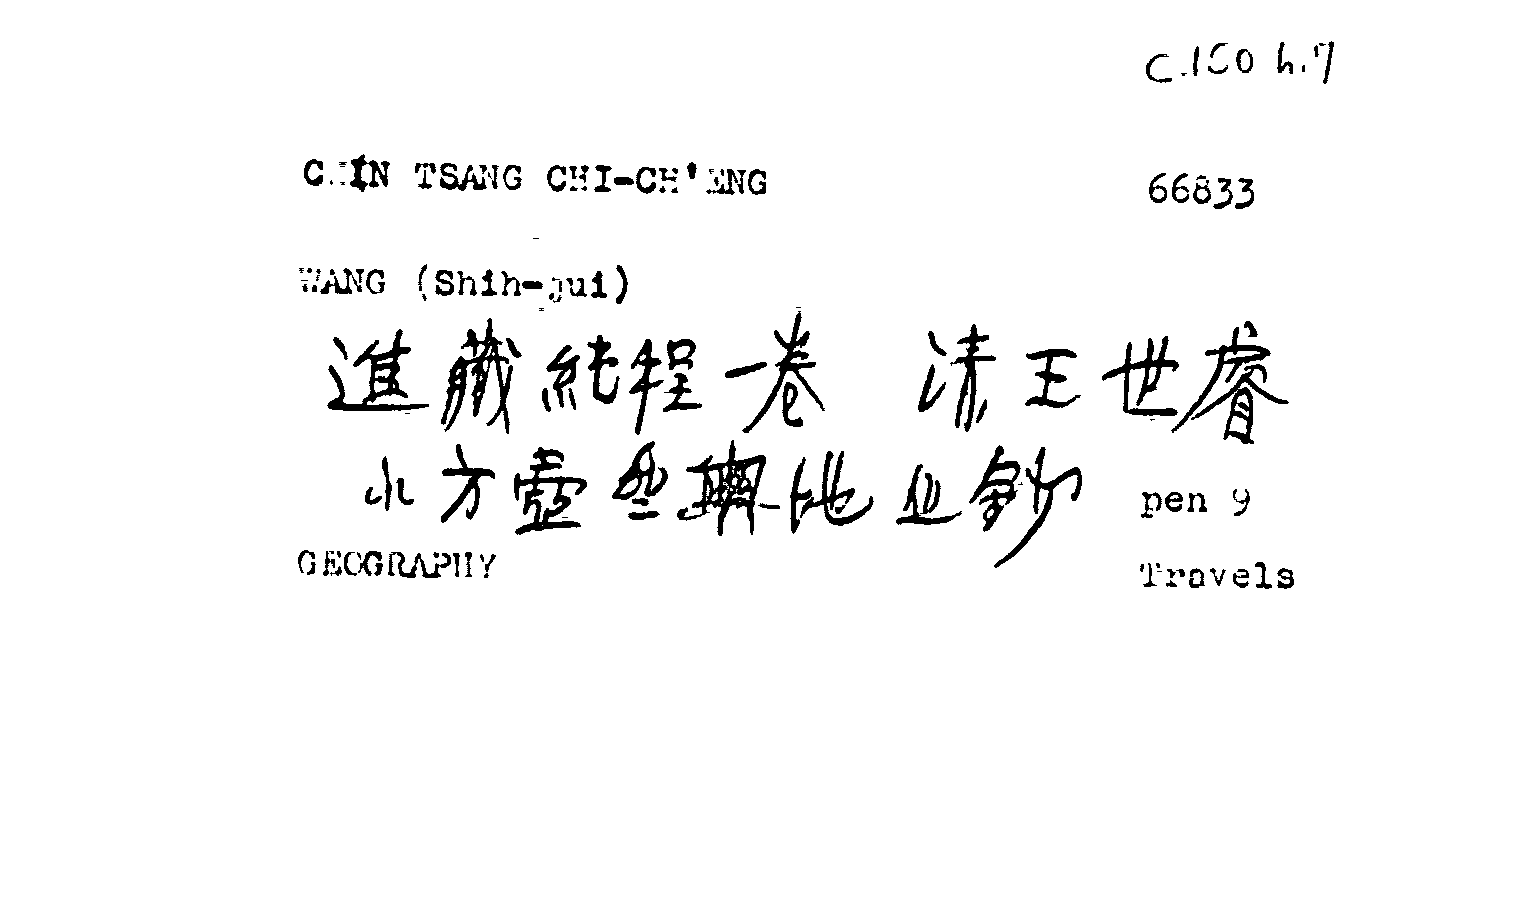 C.150 h.7
CHIN TSANG CHI-CH'ENG 66833
WANG (Shih-jui)
進藏紀程一卷 清王世睿
小方壺亝輿地丛鈔 pen 9
GEOGRAPHY Travels